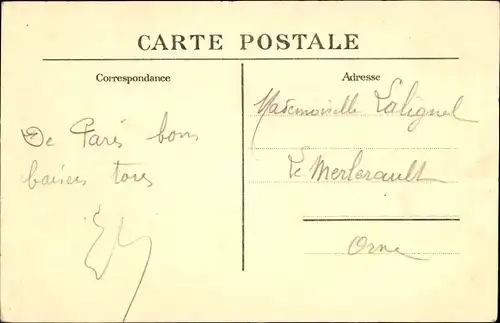 CARTE POSTALE
Correspondance
De Paris bons
baisers tous
Adresse
Mademoiselle Lalignel
Le Merlerault
Orne